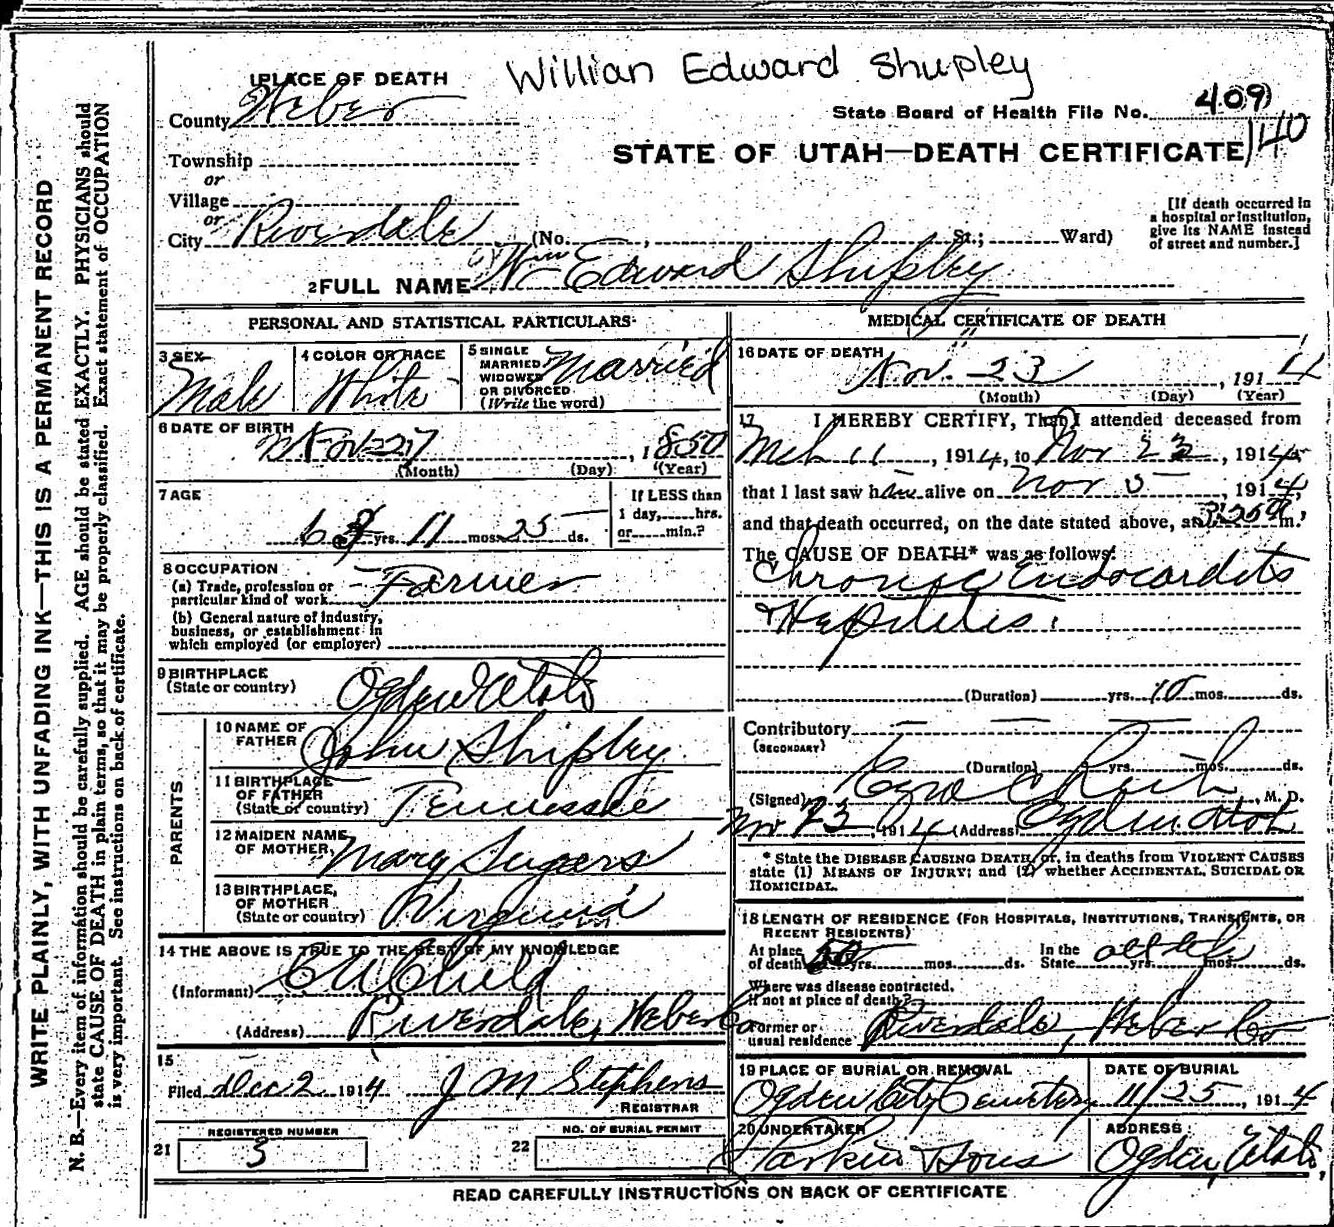 Willian Edward Shupley
1 PLACE OF DEATH
County Weber
State Board of Health File No. 409
140
STATE OF UTAH—DEATH CERTIFICATE
Township
or
Village
or
City Riverdale (No. , St.; Ward)
[If death occurred in
a hospital or institution,
give its NAME instead
of street and number.]
2 FULL NAME Wm Edward Shipley
PERSONAL AND STATISTICAL PARTICULARS
3 SEX
Male
4 COLOR OR RACE
White
5 SINGLE
MARRIED
WIDOWED
OR DIVORCED
(Write the word)
Married
6 DATE OF BIRTH
27, 1850
(Month) (Day) (Year)
7 AGE
yrs. 11 mos. 25 ds.
If LESS than
1 day, hrs.
or min.?
8 OCCUPATION
(a) Trade, profession or
particular kind of work Farmer
(b) General nature of industry,
business, or establishment in
which employed (or employer)
9 BIRTHPLACE
(State or country) Ogden Utah
PARENTS
10 NAME OF
FATHER John Shipley
11 BIRTHPLACE
OF FATHER
(State or country) Tennessee
12 MAIDEN NAME
OF MOTHER, Mary
13 BIRTHPLACE,
OF MOTHER
(State or country) Virginia
14 THE ABOVE IS TRUE TO THE BEST OF MY KNOWLEDGE
(Informant) Child
(Address) Riverdale, Weber Co
15
Filed Dec 2 1914 J M Stephens
REGISTRAR
21 REGISTERED NUMBER
3
22 NO. OF BURIAL PERMIT
MEDICAL CERTIFICATE OF DEATH
16 DATE OF DEATH
Nov. 23, 1914
(Month) (Day) (Year)
17 I HEREBY CERTIFY, That I attended deceased from
Mch 11, 1914, to Nov 23, 1914
that I last saw him alive on Nov 5, 1914,
and that death occurred, on the date stated above, at m.
The CAUSE OF DEATH* was as follows:
Chronic Endocardits
+ Hepititis.
(Duration) yrs. 10 mos. ds.
Contributory
(SECONDARY)
(Duration) yrs. mos. ds.
(Signed) Ezra C Rich, M. D.
Nov 23, 1914 (Address) Ogden Utah
* State the DISEASE CAUSING DEATH, or, in deaths from VIOLENT CAUSES
state (1) MEANS OF INJURY; and (2) whether ACCIDENTAL, SUICIDAL OR
HOMICIDAL.
18 LENGTH OF RESIDENCE (FOR HOSPITALS, INSTITUTIONS, TRANSIENTS, OR
RECENT RESIDENTS)
At place
of death yrs. mos. ds.
In the
State all life yrs. mos. ds.
Where was disease contracted,
if not at place of death?
Former or
usual residence Riverdale, Weber Co
19 PLACE OF BURIAL OR REMOVAL
Ogden City Cemetery
DATE OF BURIAL
11/25, 1914
20 UNDERTAKER
Larkin Sons
ADDRESS
Ogden, Utah,
READ CAREFULLY INSTRUCTIONS ON BACK OF CERTIFICATE
WRITE PLAINLY, WITH UNFADING INK—THIS IS A PERMANENT RECORD
N. B.—Every item of information should be carefully supplied. AGE should be stated EXACTLY. PHYSICIANS should
state CAUSE OF DEATH in plain terms, so that it may be properly classified. Exact statement of OCCUPATION
is very important. See instructions on back of certificate.